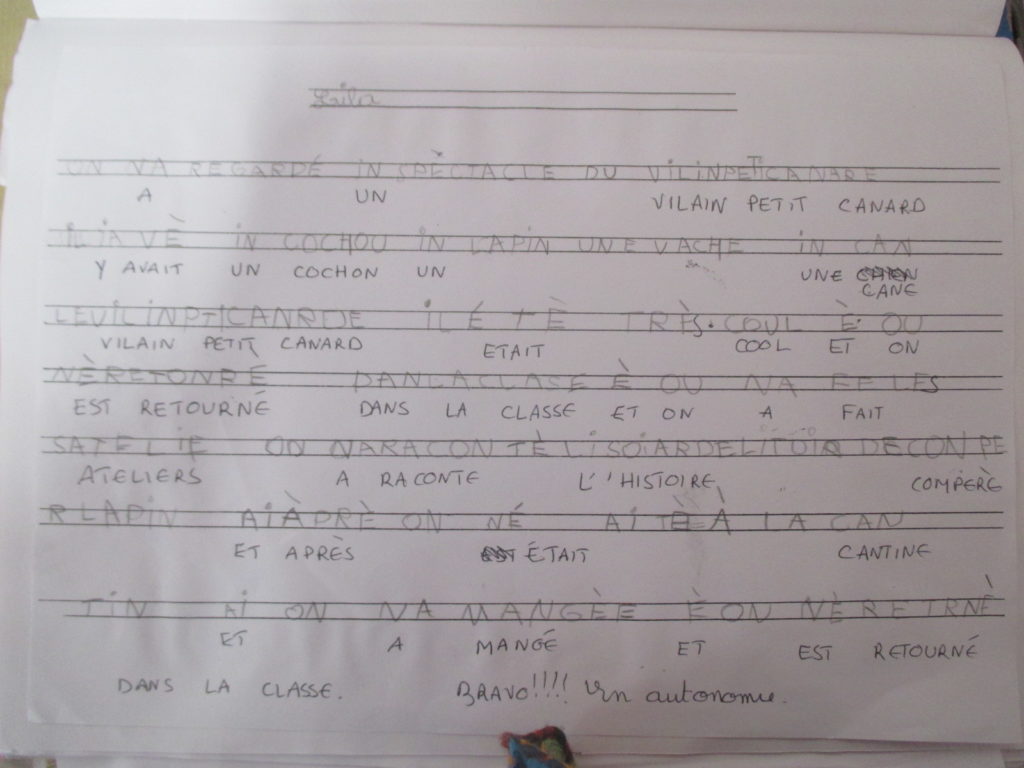 Leila
ON VA REGARDÉ IN SPÈCTACLE DU VILINPETITCANARE
A UN VILAIN PETIT CANARD
IL IA VÈ IN COCHOU IN LAPIN UNE VACHE IN CAN
Y AVAIT UN COCHON UN UNE CANE
LEVILINPTICANRDE IL É TÈ TRÈS. COUL È OU
VILAIN PETIT CANARD ETAIT COOL ET ON
NÈRETONRÉ DANLACLASE È OU NA FE LES
EST RETOURNÉ DANS LA CLASSE ET ON A FAIT
SATELIE ON NARACONTÈLISOIARDELITOIR DECONPE
ATELIERS A RACONTE L'HISTOIRE COMPÈRE
RLAPIN AIÀPRÈ ON NÉ AITÈÀ LA CAN
ET APRÈS ÉTAIT CANTINE
TIN AI ON NA MANGÈE È ON NÈRETRNÈ
ET A MANGÉ ET EST RETOURNÉ
DANS LA CLASSE. BRAVO!!!! En autonomie.